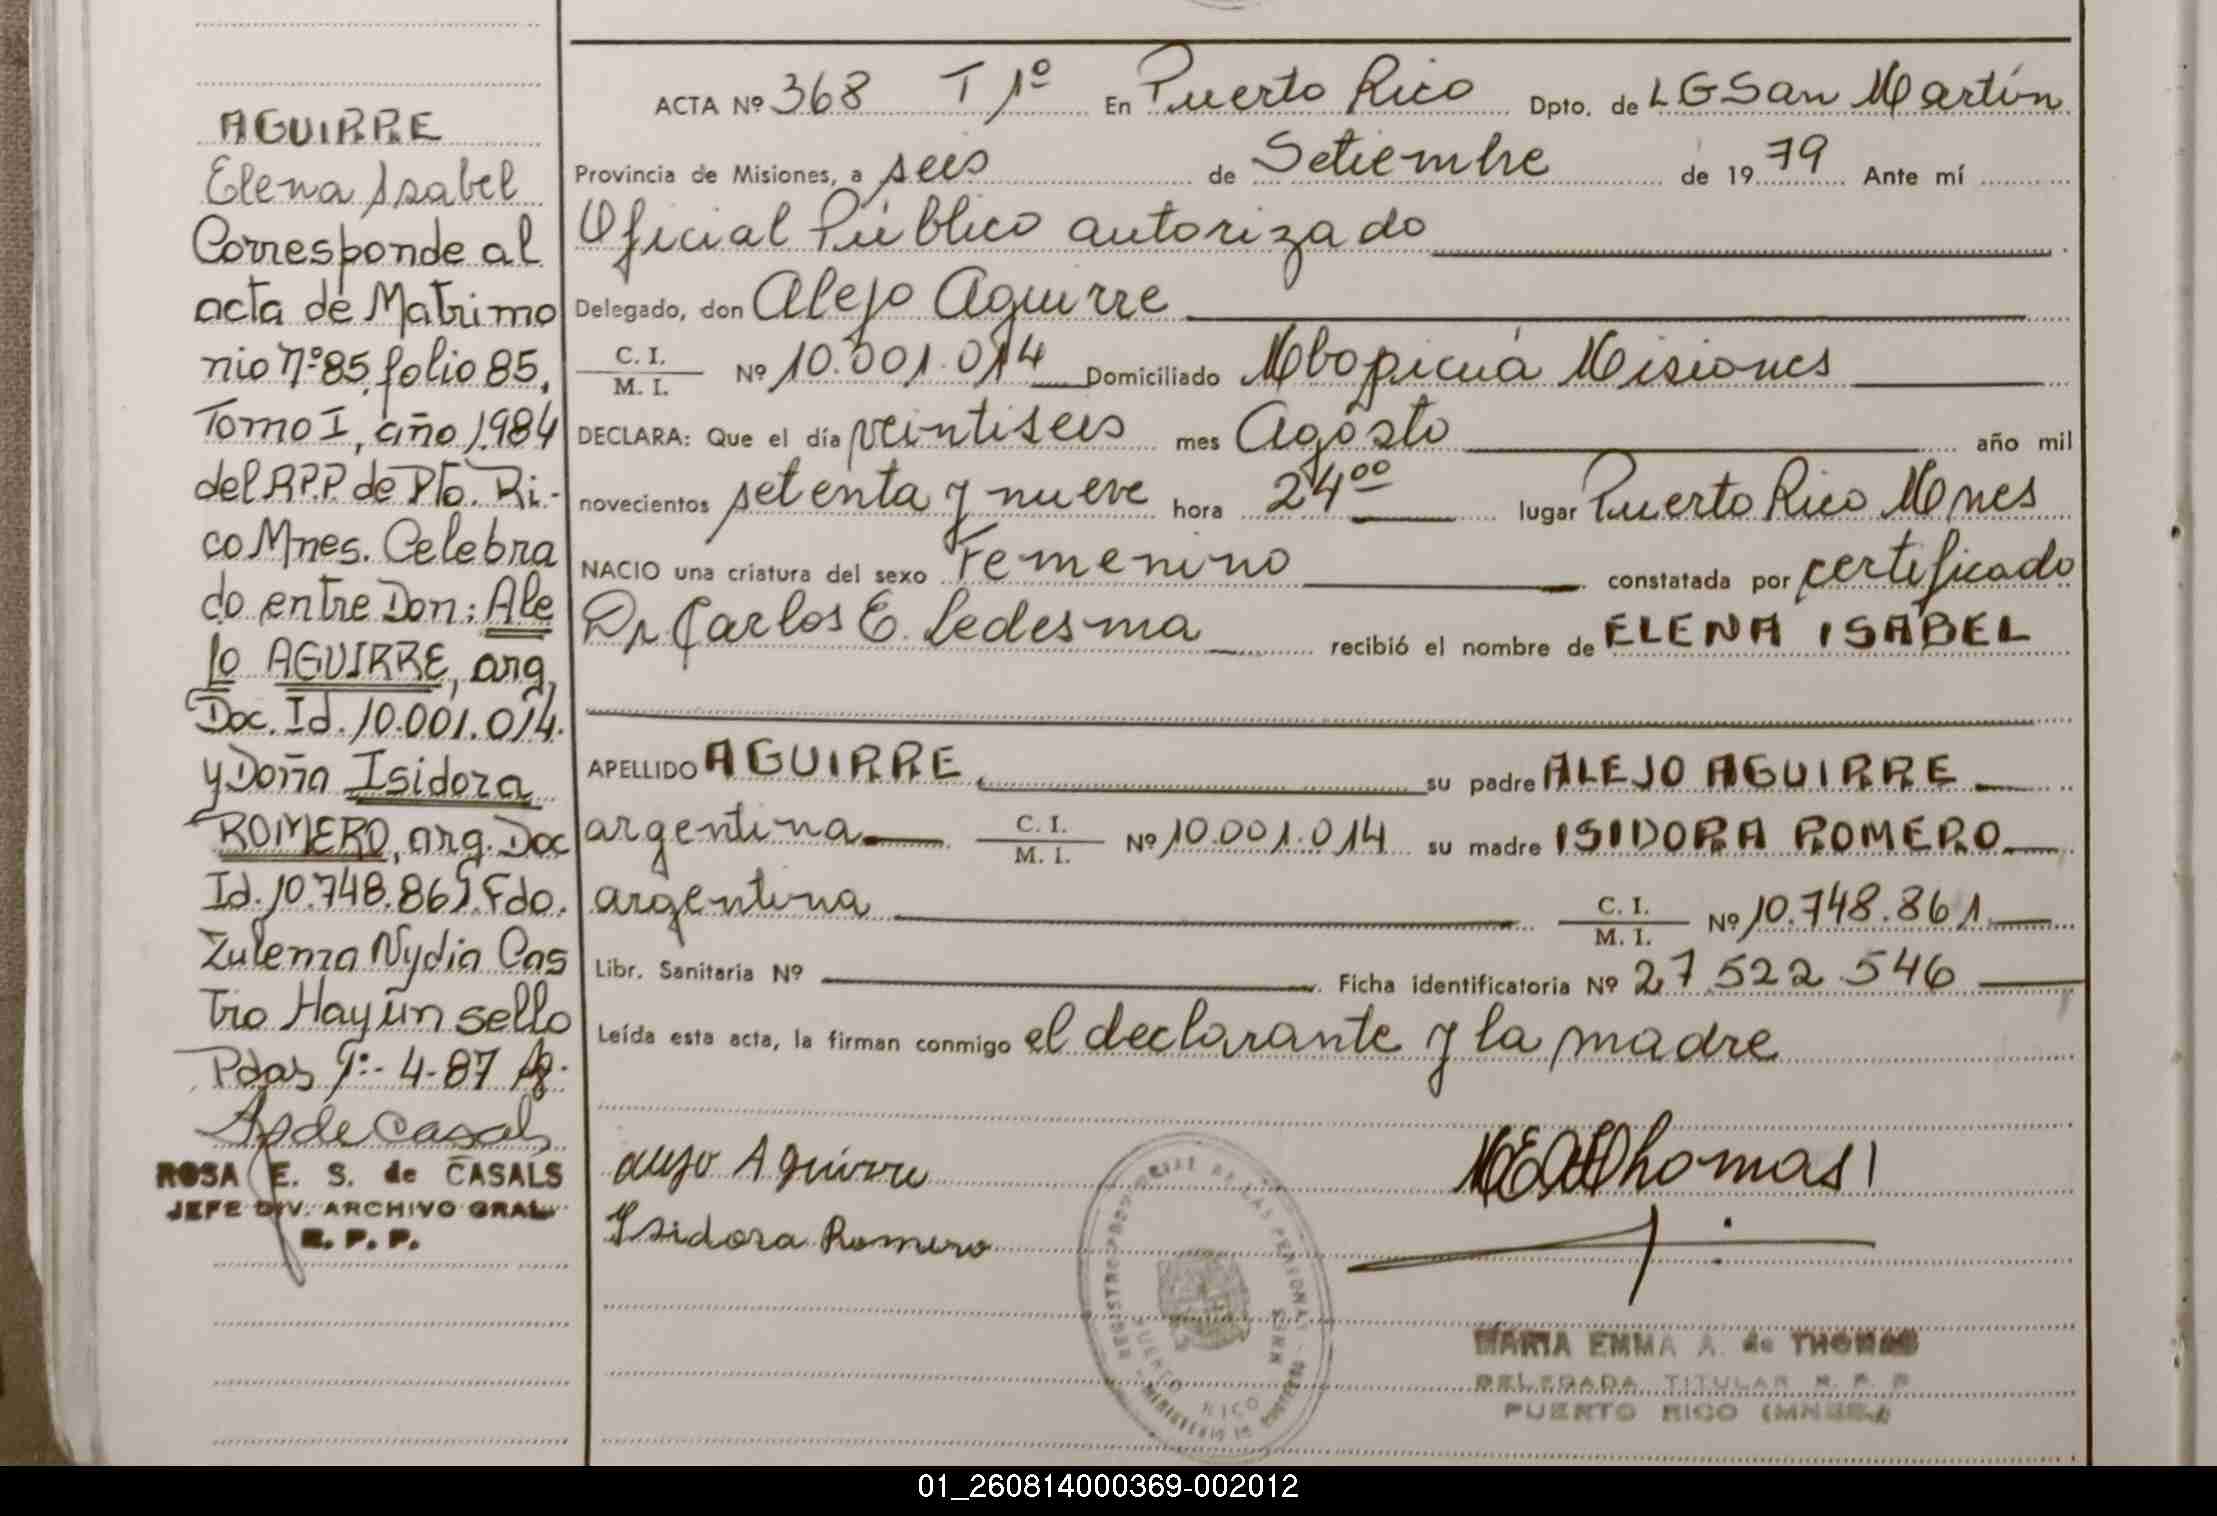 AGUIRRE
Elena Isabel
Corresponde al
acta de Matrimo
nio Nº 85, folio 85,
Tomo I, año 1984
del R.P.P. de Pto. Ri-
co Mnes. Celebra
do entre Don: Ale
jo AGUIRRE, arg,
Doc. Id. 10.001.014.
y Doña Isidora
ROMERO, arg. Doc
Id. 10.748.861. Fdo.
Zulema Nydia Cas
tro Hay un sello
Pdas 9-4-87
ROSA E. S. de CASALS
JEFE DIV. ARCHIVO GRAL
R. P. P.
ACTA Nº 368 T 1º En Puerto Rico Dpto. de LG San Martín
Provincia de Misiones, a seis de Setiembre de 1979 Ante mí
Oficial Público autorizado
Delegado, don Alejo Aguirre
C. I. M. I. Nº 10.001.014 Domiciliado Mbopicuá Misiones
DECLARA: Que el día veintiseis mes Agosto año mil
novecientos setenta y nueve hora 24⁰⁰ lugar Puerto Rico Mnes
NACIO una criatura del sexo Femenino constatada por certificado
Dr Carlos E. Ledesma recibió el nombre de ELENA ISABEL
APELLIDO AGUIRRE su padre ALEJO AGUIRRE
argentina C. I. M. I. Nº 10.001.014 su madre ISIDORA ROMERO
argentina C. I. M. I. Nº 10.748.861
Libr. Sanitaria Nº Ficha identificatoria Nº 27.522.546
Leída esta acta, la firman conmigo el declarante y la madre
alejo Aguirre
Isidora Romero
REGISTRO PROVINCIAL DE LAS PERSONAS
PUERTO RICO MNES
MARIA EMMA A. de THOMAS
DELEGADA TITULAR R. P. P.
PUERTO RICO (MNES.)
01_260814000369-002012